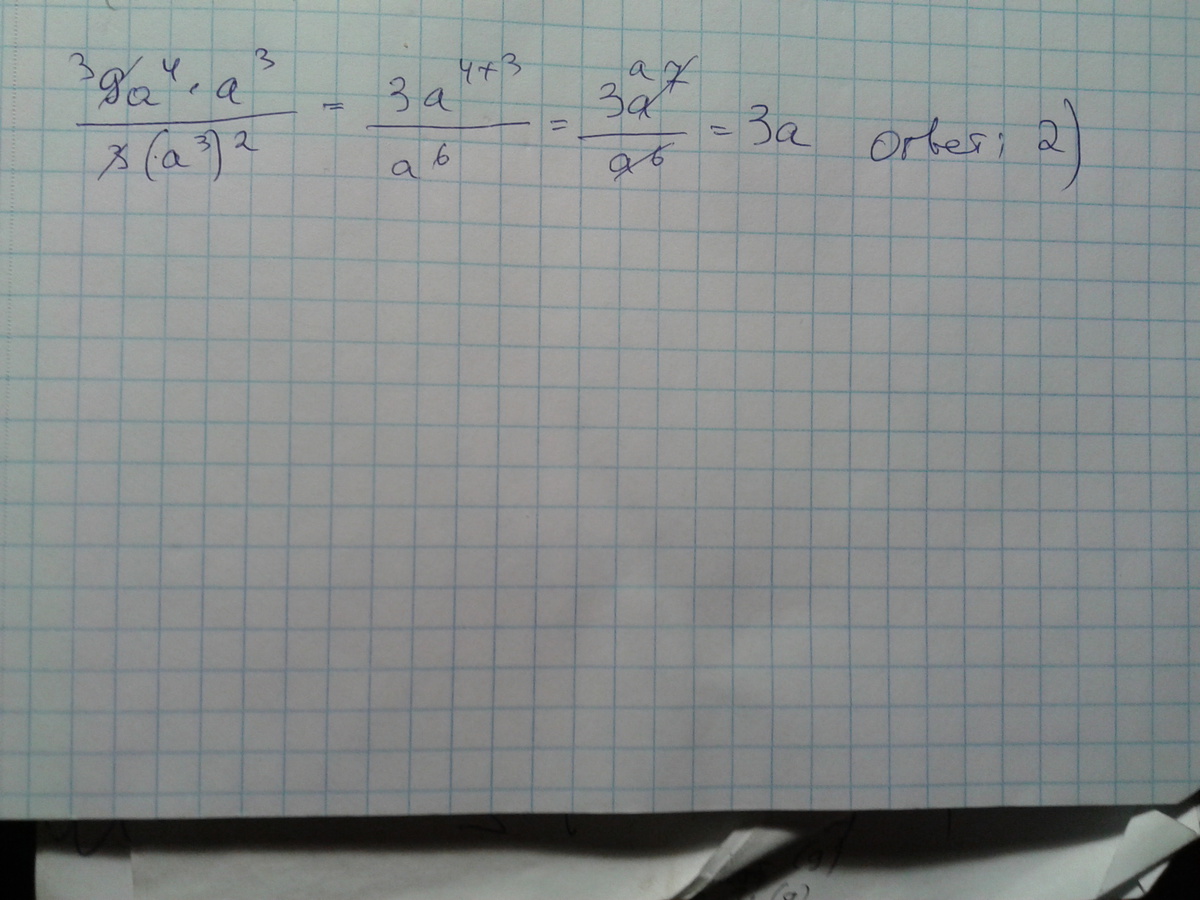 ³9a⁴·a³ / 3(a³)² = 3a⁴⁺³ / a⁶ = 3a⁷ a / a⁶ = 3a Ответ; 2)